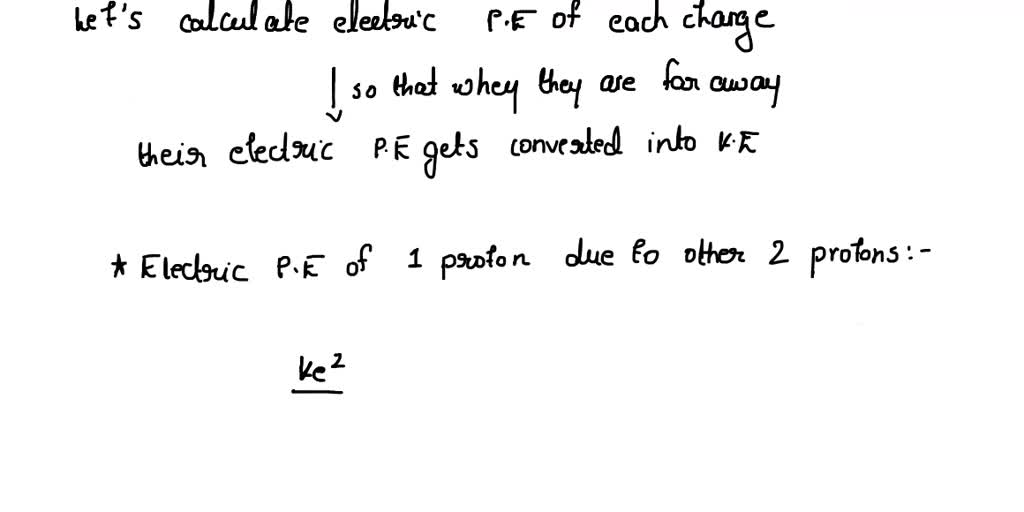 Let's calculate electric P.E of each charge
↓ so that whey they are far away
their electric P.E gets converted into K.E
* Electric P.E of 1 proton due to other 2 protons:-
ke²